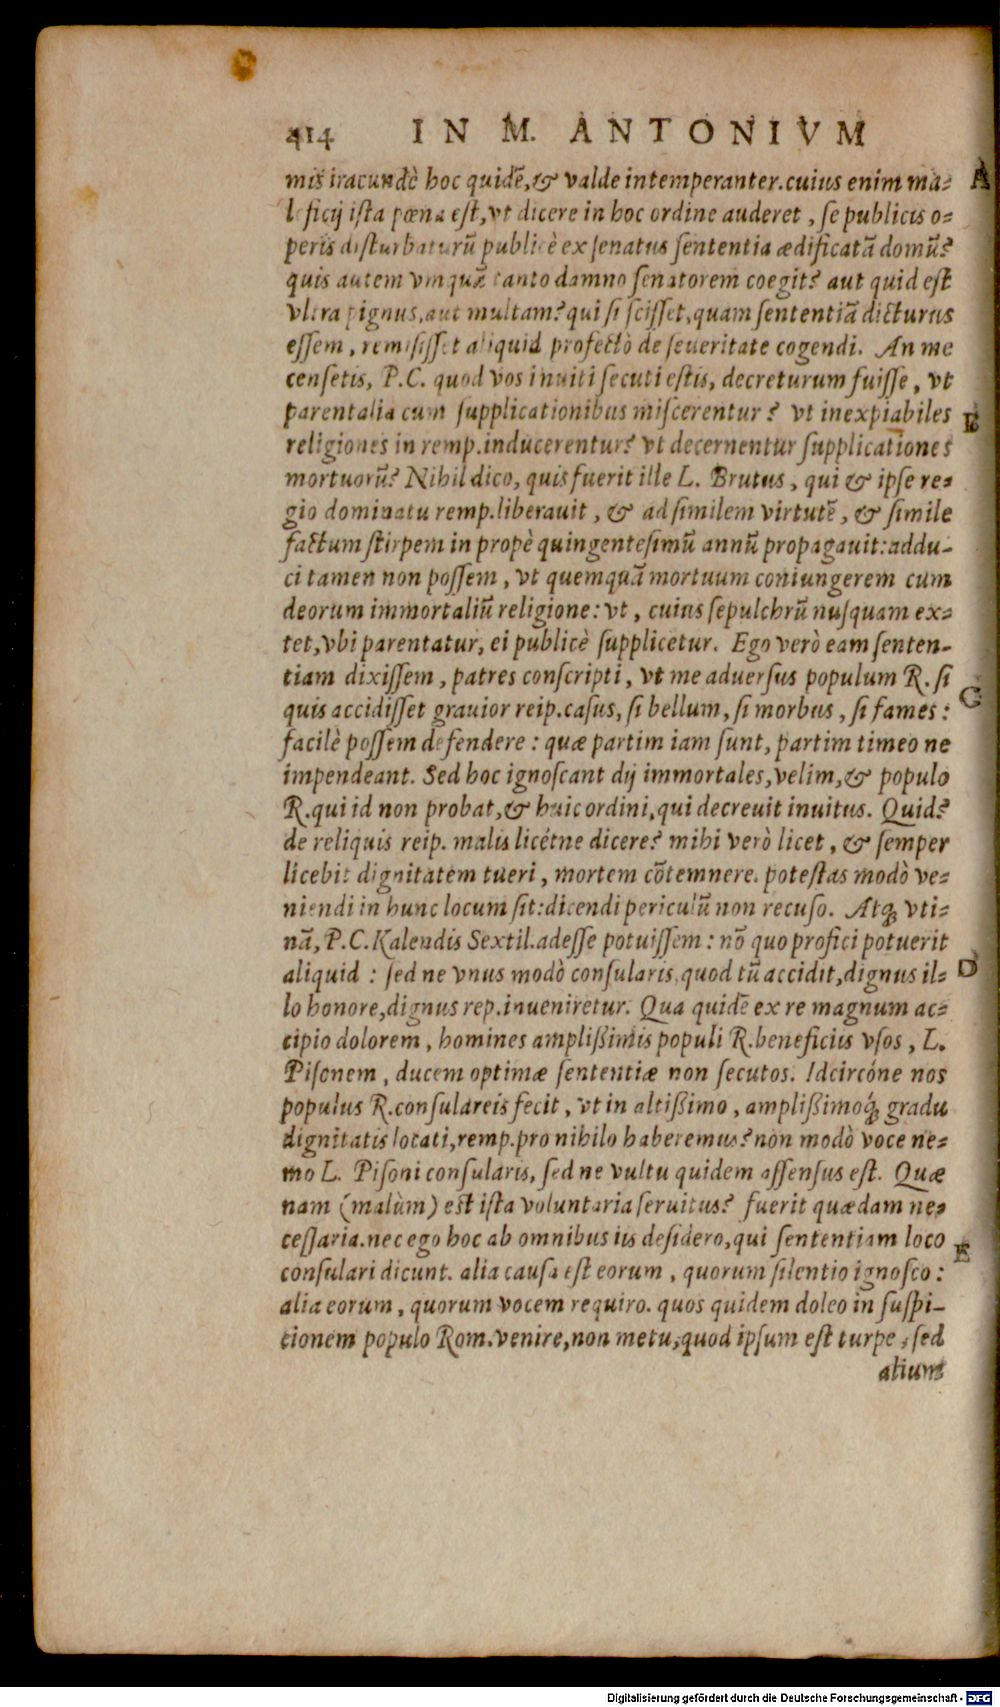 414 IN M. ANTONIVM
mis iracundè hoc quidē,& valde intemperanter.cuius enim ma- A
leficij ista pœna est,vt dicere in hoc ordine auderet, se publicis o-
peris disturbaturū publicè ex senatus sententia ædificatā domū?
quis autem vmquā tanto damno senatorem coegit? aut quid est
vltra pignus,aut multam? qui si scisset,quam sententiā dicturus
essem, remisisset aliquid profectò de seueritate cogendi. An me
censetis, P.C. quod vos inuiti secuti estis, decreturum fuisse, vt
parentalia cum supplicationibus miscerentur? vt inexpiabiles B
religiones in remp.inducerentur? vt decernentur supplicationes
mortuorū? Nihil dico, quis fuerit ille L. Brutus, qui & ipse re-
gio dominatu remp.liberauit, & ad similem virtutē, & simile
factum stirpem in propè quingentesimū annū propagauit: addu-
ci tamen non possem, vt quemquā mortuum coniungerem cum
deorum immortaliū religione: vt, cuius sepulchrū nusquam ex-
tet,vbi parentatur, ei publicè supplicetur. Ego verò eam senten-
tiam dixissem, patres conscripti, vt me aduersus populum R. si C
quis accidisset grauior reip.casus, si bellum, si morbus, si fames:
facilè possem defendere: quæ partim iam sunt, partim timeo ne
impendeant. Sed hoc ignoscant dij immortales, velim,& populo
R.qui id non probat,& huic ordini,qui decreuit inuitus. Quid?
de reliquis reip. malis licétne dicere? mihi verò licet, & semper
licebit dignitatem tueri, mortem cōtemnere. potestas modò ve-
niendi in hunc locum sit:dicendi periculū non recuso. Atq; vti-
nā, P.C. Kalendis Sextil.adesse potuissem: nō quo profici potuerit
aliquid: sed ne vnus modò consularis,quod tū accidit,dignus il- D
lo honore,dignus rep.inueniretur. Qua quidē ex re magnum ac-
cipio dolorem, homines amplißimis populi R.beneficiis vsos, L.
Pisonem, ducem optimæ sententiæ non secutos. Idcircóne nos
populus R.consulareis fecit, vt in altißimo, amplißimoq́; gradu
dignitatis locati,remp.pro nihilo haberemus? non modò voce ne-
mo L. Pisoni consularis, sed ne vultu quidem assensus est. Quæ
nam (malùm) est ista voluntaria seruitus? fuerit quædam ne-
cessaria.nec ego hoc ab omnibus iis desidero,qui sententiam loco E
consulari dicunt. alia causa est eorum, quorum silentio ignosco:
alia eorum, quorum vocem requiro. quos quidem doleo in suspi-
tionem populo Rom.venire,non metu,quod ipsum est turpe, sed
alium
Digitalisierung gefördert durch die Deutsche Forschungsgemeinschaft - DFG